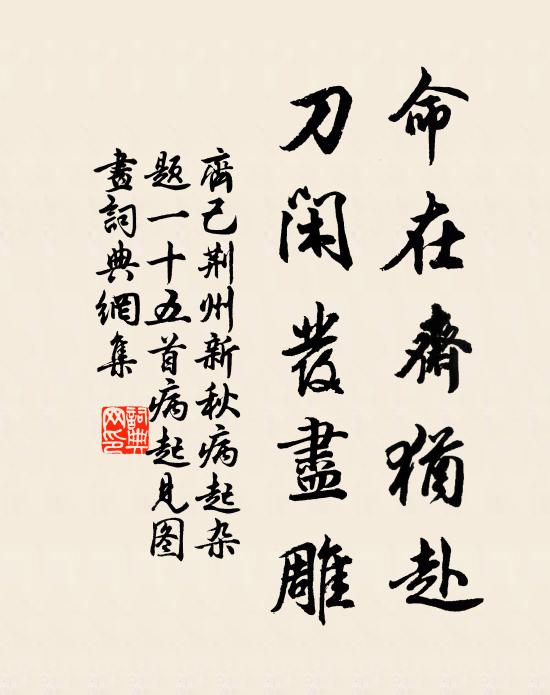 命在齋猶赴
刀閑發盡雕
齊己荆州新秋病起杂
題一十五首病起見图
畫詞典網集
詞典网印